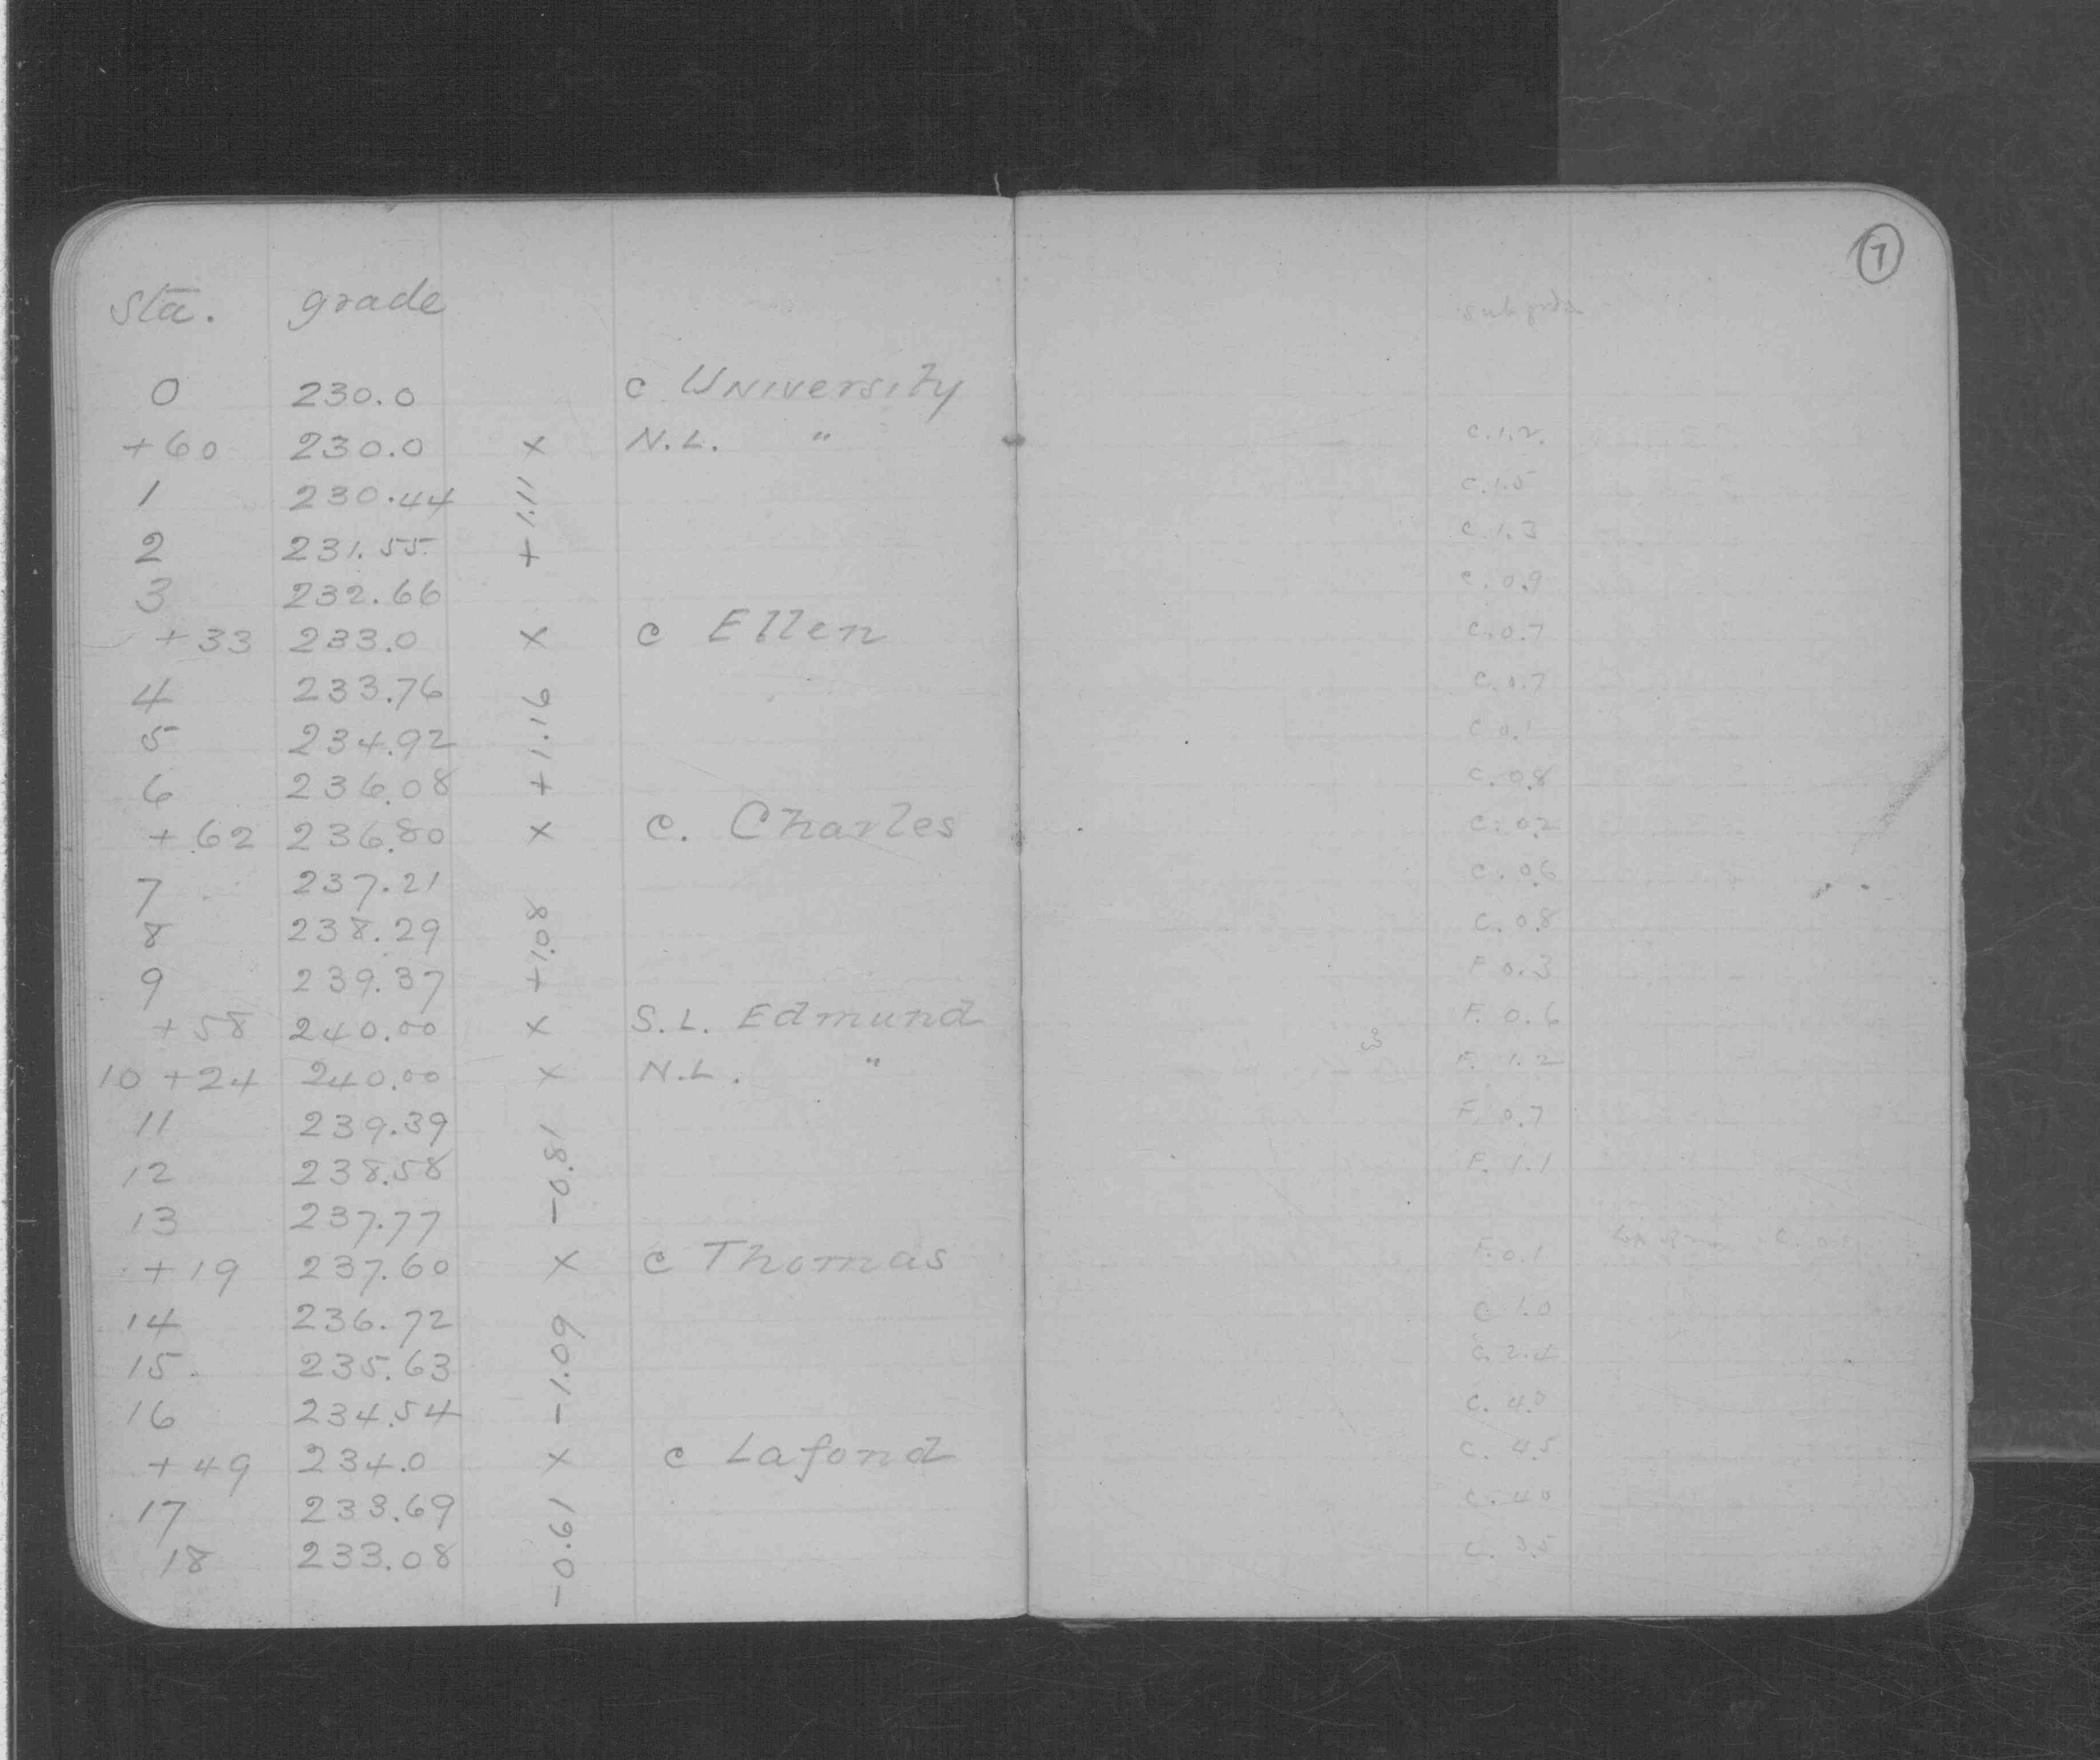 7
Sta. grade
subgrade
0 230.0 c University
+60 230.0 x N.L. " C.1.2
1 230.44 C.1.5
+1.11
2 231.55 C 1.3
3 232.66 C. 0.9
+33 233.0 x c Ellen C.0.7
4 233.76 C.0.7
+1.16
5 234.92 C 0.1
6 236.08 C. 0.8
+62 236.80 x c. Charles C. 0.2
7 237.21 C. 0.6
8 238.29 C. 0.8
+1.08
9 239.37 F 0.3
+58 240.00 x S.L. Edmund F. 0.6
10 +24 240.00 x N.L. " F. 1.2
11 239.39 F. 0.7
-0.81
12 238.58 F. 1.1
13 237.77
+19 237.60 x c Thomas F. 0.1
14 236.72 C 1.0
-1.09
15 235.63 C. 2.4
16 234.54 C. 4.0
+49 234.0 x c Lafond C. 4.5
17 233.69 C. 4.0
-0.61
18 233.08 C.